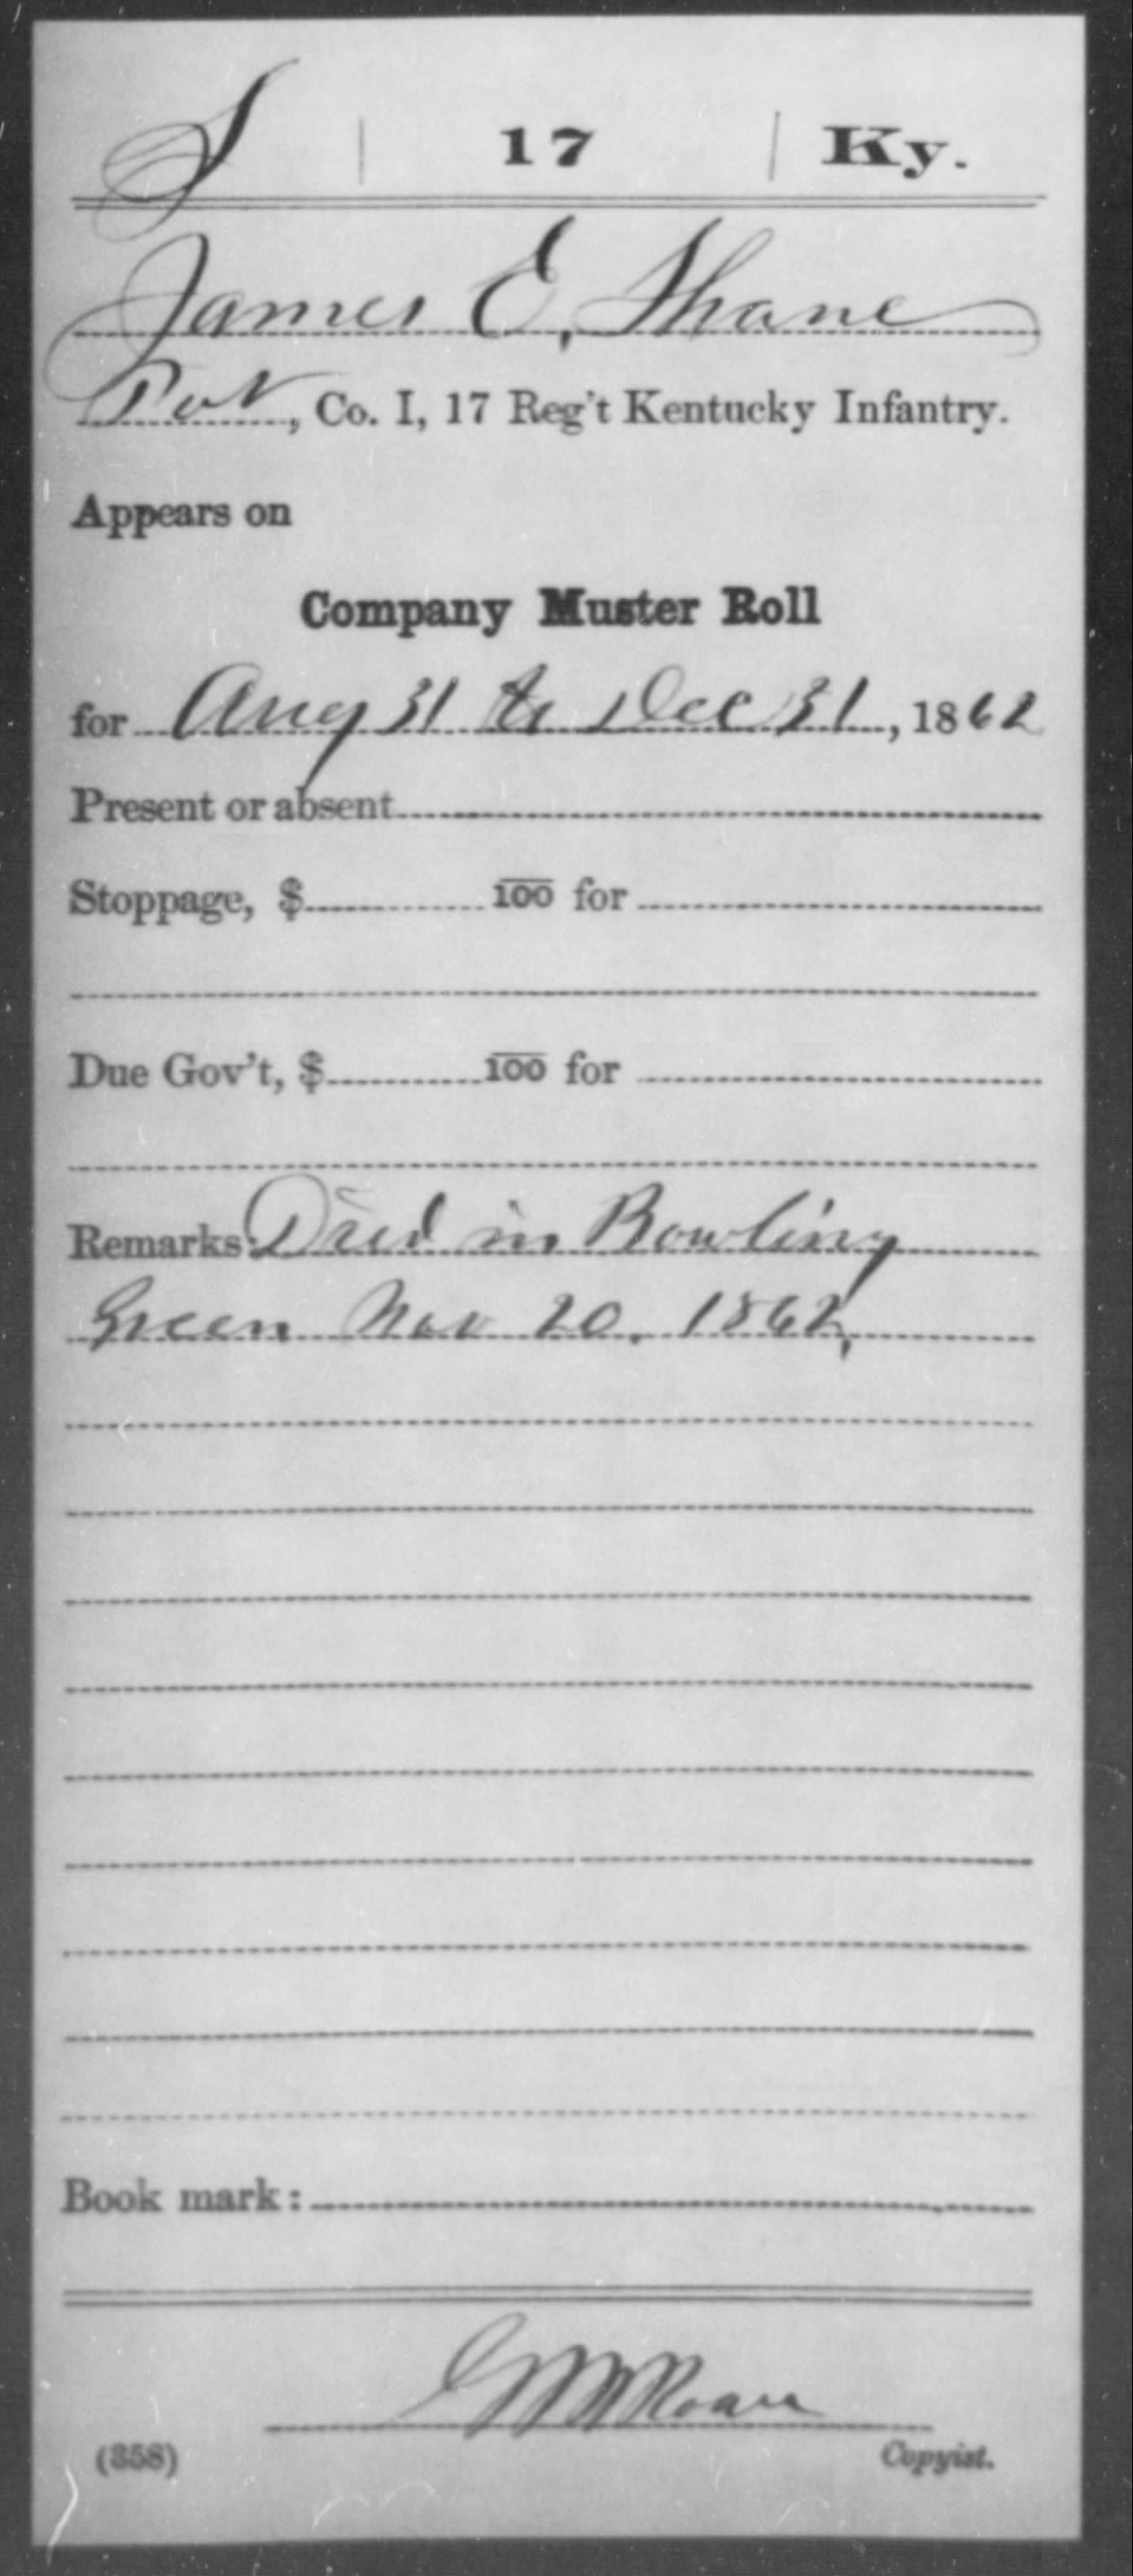 S | 17 | Ky.
James E, Shane
Pvt, Co. I, 17 Reg't Kentucky Infantry.
Appears on
Company Muster Roll
for Aug 31 to Dec 31, 1862
Present or absent
Stoppage, $ 100 for
Due Gov't, $ 100 for
Remarks: Died in Bowling
Green Nov 20, 1862,
Book mark:
(358) Copyist.